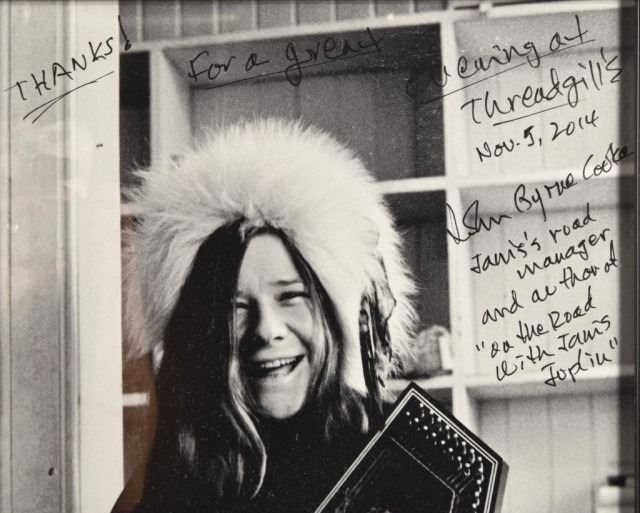 THANKS!
For a great evening at
Threadgill's
Nov. 5, 2014
John Byrne Cooke
Janis's road
manager
and author of
"On the Road
with Janis
Joplin"